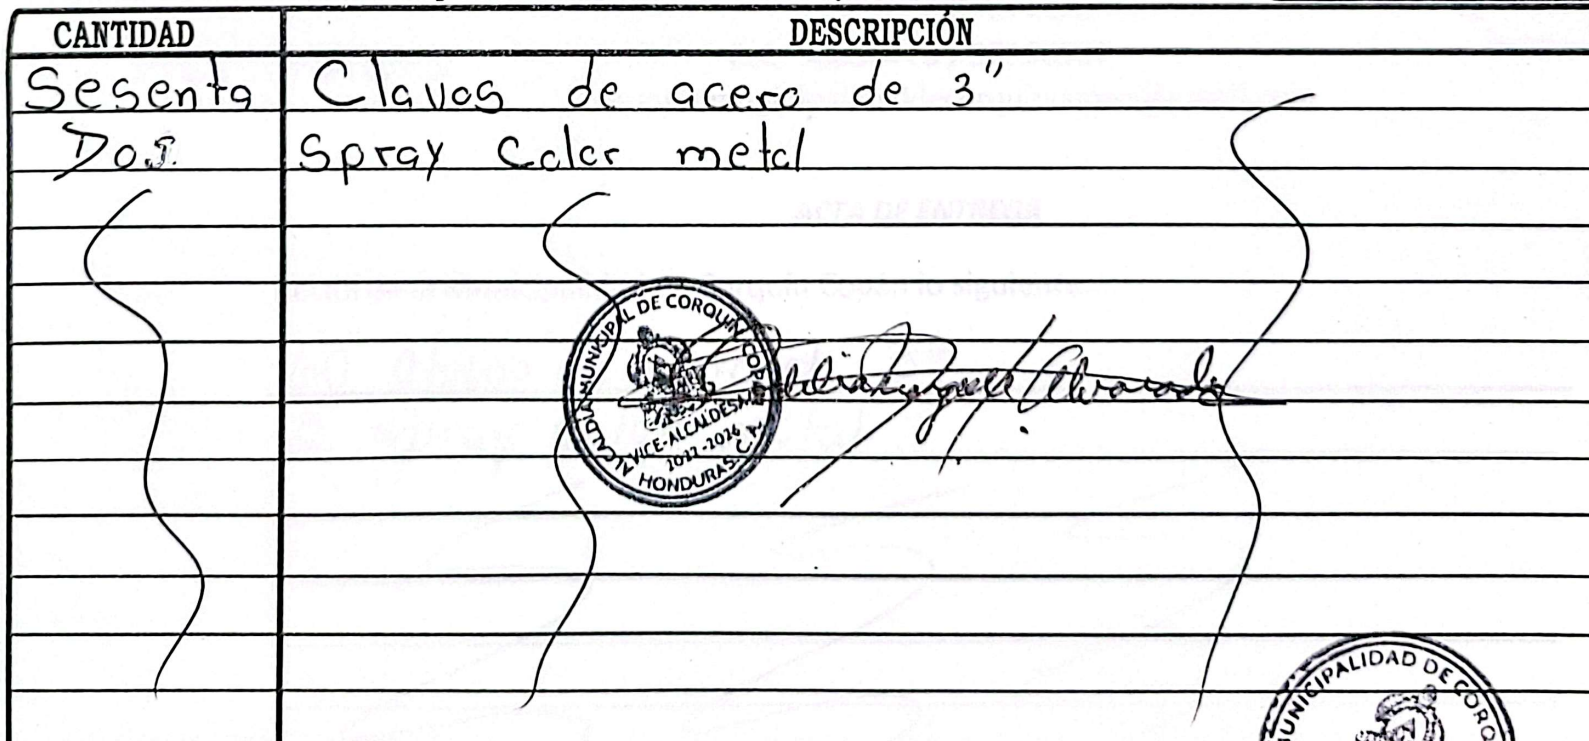 CANTIDAD DESCRIPCIÓN
Sesenta Clavos de acero de 3"
Dos Spray Color metal
ACTA DE ENTREGA
lo siguiente
ALCALDIA MUNICIPAL DE CORQUIN, COPAN
VICE-ALCALDESA
2022-2026
HONDURAS, C.A.
Alvarado
MUNICIPALIDAD DE CORQ